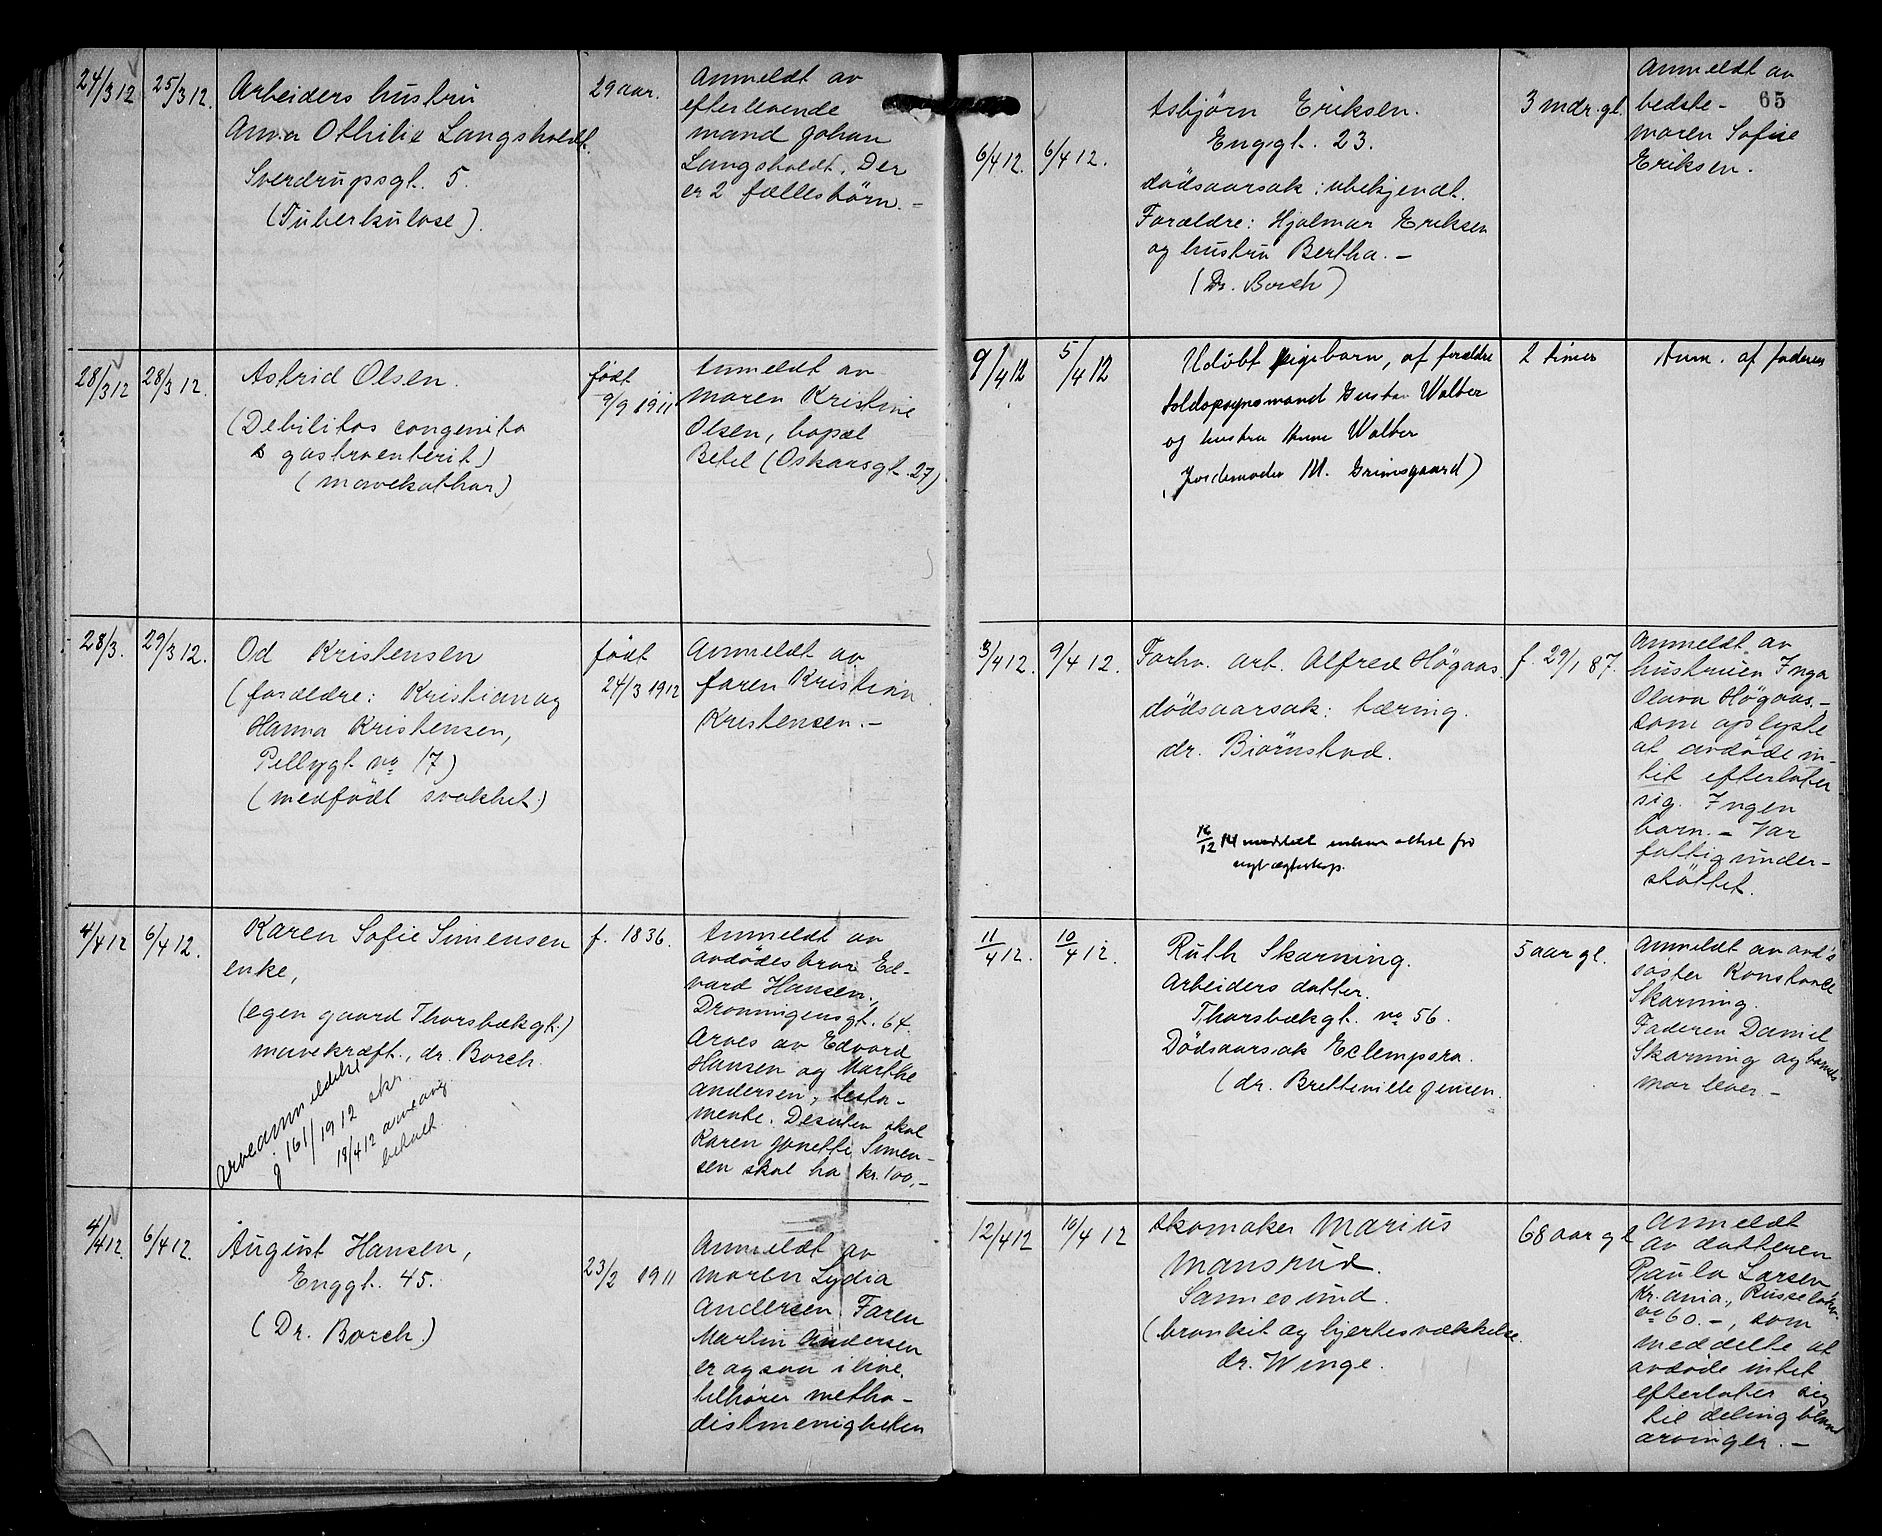 24/3 12 25/3 12. Arbeiders hustru 29 aar. Anmeldt av
Anna Othilie Langsholdt. efterlevende
Sverdrupsgt. 5. mand Johan
(Tuberkulose). Langsholdt. Der
er 2 fællesbörn. –
28/3 12 28/3 12. Astrid Olsen. født Anmeldt av
9/9 1911 moren Kristine
(Debilitas congenita Olsen, bopæl
& gastroenterit) Betel (Oskarsgt. 27)
(mavekathar)
28/3. 29/3 12. Od Kristensen født Anmeldt av
(forældre: Kristian og 24/3 1912 faren Kristian
Hanna Kristensen, Kristensen. –
Pellygt no 17)
(medfödt svakhet)
4/4 12 6/4 12. Karen Sofie Simensen f. 1836. Anmeldt av
enke, avdödes bror Ed-
vard Hansen,
(egen gaard Thorsbækgt.) Dronningensgt. 64.
mavekræft., dr. Borch. Arves av Edvard
Hansen og Marthe
Andersen, testa-
mente. Desuten skal
Karen Jonette Simen-
sen skal ha kr. 100,–
Arveanmeldelse
161/1912 skr.
18/4 12 arveavg.
betalt.
4/4 12. 6/4 12. August Hansen, 23/2 1911 Anmeldt av
Enggt. 45. moren Lydia
(Dr. Borch.) Andersen. Faren
Martin Andersen
er ogsaa i live,
tilhører metho-
distmenigheten
65
6/4 12. 6/4 12. Asbjörn Eriksen. 3 mdr. gl. Anmeldt av
Enggt. 23. bedste-
dödsaarsak: ubekjendt. moren Sofie
Forældre: Hjalmar Eriksen Eriksen.
og hustru Bertha. –
(Dr. Borch)
9/4 12 5/4 12 Udöbt pigebarn, af forældre 2 timer Anm. af faderen
toldopsynsmand Gustav Walber
og hustru Anne Walber
(Jordemoder M. Grimsgaard)
3/4 12. 9/4 12. Forhv. arb. Alfred Högaas. f. 29/1 87. Anmeldt av
dödsaarsak: tæring. hustruen Inga
dr. Biörnstad. Olava Högaas. –
som oplyste
at avdöde in-
tet efterlater
sig. Ingen
barn. – Var
fattigunder-
stöttet.
16/12 14 meddelt enken attest for
nyt ægteskap.
11/4 12. 10/4 12. Ruth Skarning. 5 aar gl. Anmeldt av avd's
Arbeiders datter. söster Konstance
Thorsbækgt. no 56. Skarning.
Dödsaarsak Eclempsia. Faderen Daniel
(dr. Bretteville Jensen. Skarning og barnets
mor lever. –
12/4 12 10/4 12 Skomaker Marius 68 aar gl Anmeldt
Mansrud. av datteren
Sannesund. Paula Larsen
(bronkit og hjertesvækkelse. Kr.ania,
dr. Winge. no 60. –, som
meddelte at
avdöde intet
efterlater sig
til deling blandt
arvinger. –